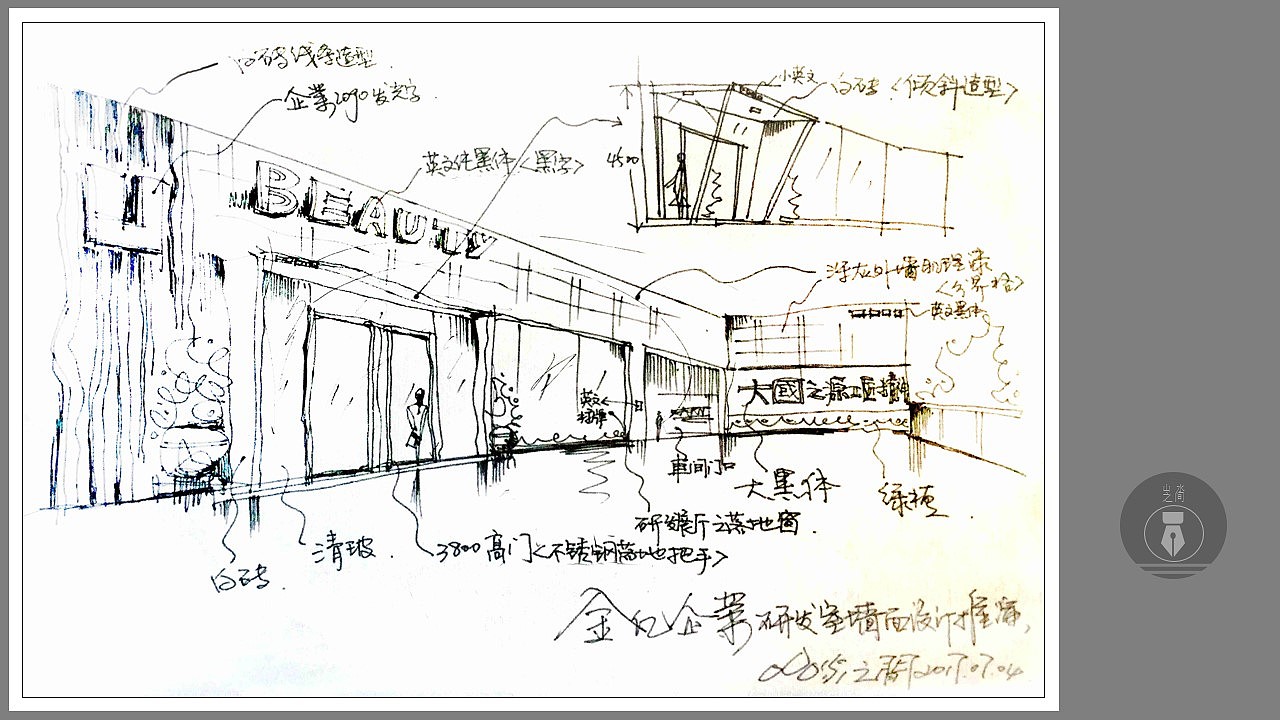 白砖线条造型
企業logo发光字
英文化黑体<黑字>
BEAUTY
小英文
白砖<倾斜造型>
4500
深灰外墙肌理漆
<分界格>
英文黑体
大國之
英文
招牌
車间门口
大黑体
绿植
研发展厅之落地窗
3800高门<不锈钢落地把手>
清玻
白砖
金亿企業研发室墙面设计推演
之間 2017.07.04